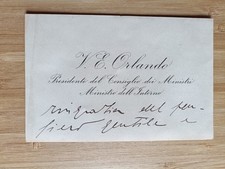 V. E. Orlando
Presidente del Consiglio dei Ministri
Ministro dell'Interno
ringratia del pen-
siero gentile e